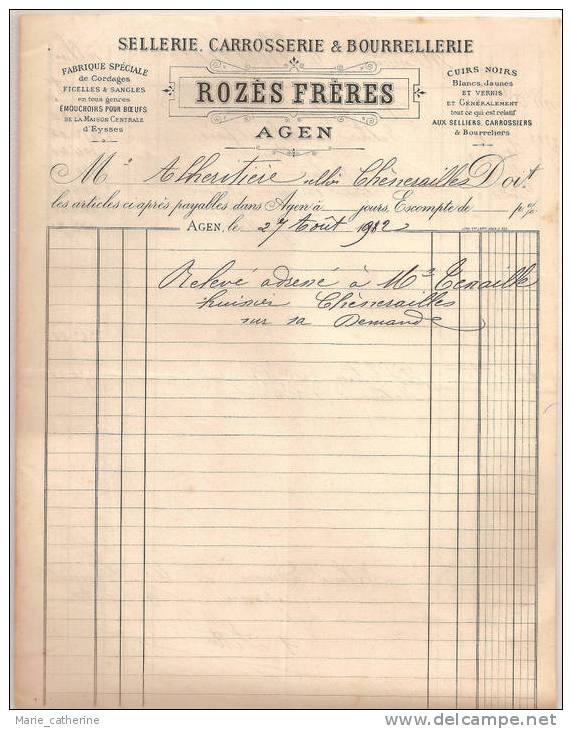 SELLERIE, CARROSSERIE & BOURRELLERIE
FABRIQUE SPÉCIALE
de Cordages
FICELLES & SANGLES
en tous genres
ÉMOUCHOIRS POUR BŒUFS
DE LA MAISON CENTRALE
d'Eysses
ROZÈS FRÈRES
AGEN
CUIRS NOIRS
Blancs, Jaunes
ET VERNIS
ET GÉNÉRALEMENT
tout ce qui est relatif
AUX SELLIERS, CARROSSIERS
& Bourreliers
M Chénerailles Doit
les articles ci après payables dans Agen à jours, Escompte de p%
AGEN, le 27 Août 1912
Relevé adressé à Mᵉ Tenaille
huissier Chénerailles
sur sa Demande
Marie_catherine
www.delcampe.net